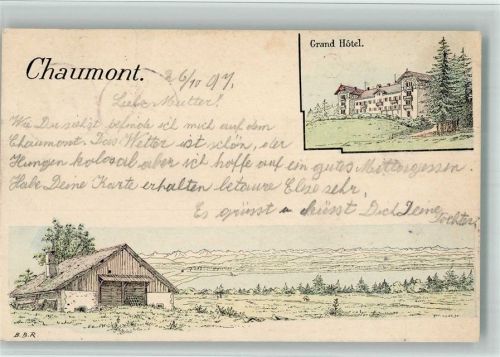 Grand Hôtel.
Chaumont. 26/10 97.
Liebe Mutter!
Wie Du siehst befinde ich mich auf dem
Chaumont. Das Wetter ist schön, der
Hungen kolosal aber ich hoffe auf ein gutes Mittagessen.
Habe Deine Karte erhalten betaure Elise sehr,
Es grüsst u küsst Dich Deine
Tochter
B.B.R